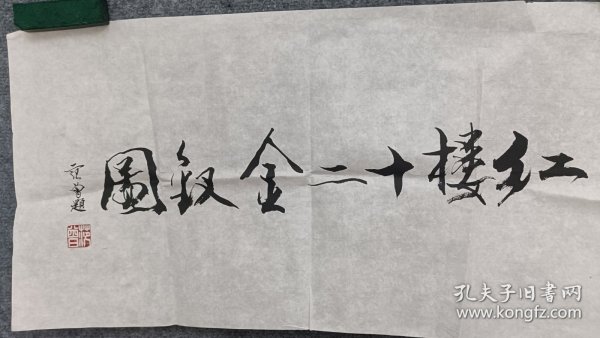 红楼十二金钗图
范曾题
孔夫子旧书网
www.kongfz.com